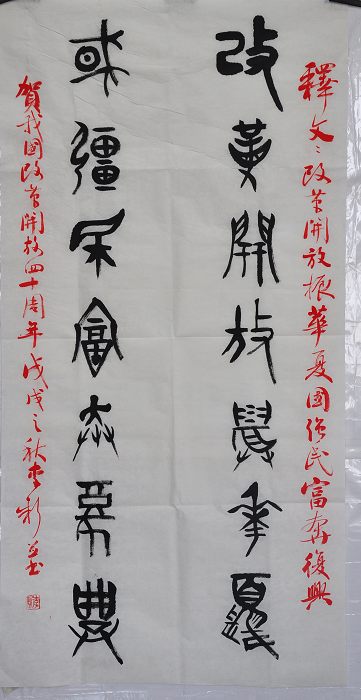 釋文:改革開放振華夏國強民富奔復興
改革開放振華夏
或彊民富奔復興
賀我國改革開放四十周年戊戌之秋